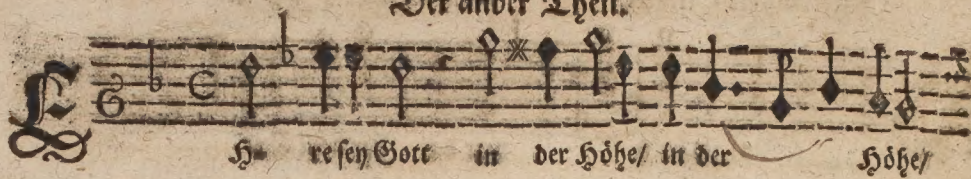 Der ander Theil.
EH- re sey Gott in der Höhe/ in der Höhe/